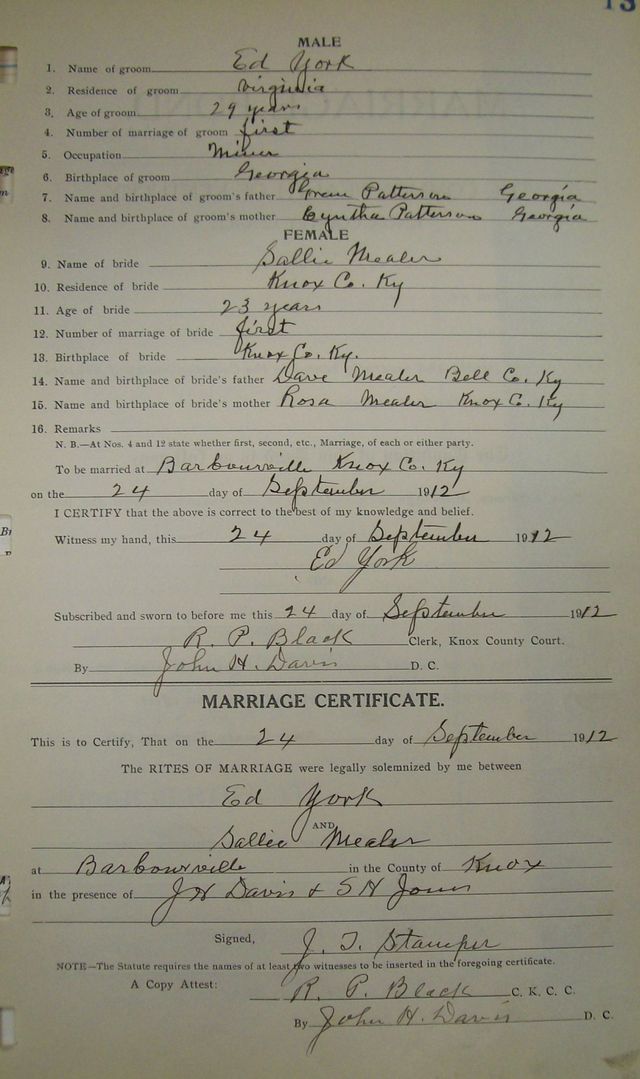 13
MALE
1. Name of groom Ed York
2. Residence of groom Virginia
3. Age of groom 29 years
4. Number of marriage of groom first
5. Occupation Miner
6. Birthplace of groom Georgia
7. Name and birthplace of groom's father Patterson Georgia
8. Name and birthplace of groom's mother Cyntha Patterson Georgia
FEMALE
9. Name of bride Sallie Mealer
10. Residence of bride Knox Co. Ky
11. Age of bride 23 years
12. Number of marriage of bride first
13. Birthplace of bride Knox Co. Ky.
14. Name and birthplace of bride's father Dave Mealer Bell Co. Ky
15. Name and birthplace of bride's mother Rosa Mealer Knox Co. Ky
16. Remarks
N. B.—At Nos. 4 and 12 state whether first, second, etc., Marriage, of each or either party.
To be married at Barbourville Knox Co. Ky
on the 24 day of September 1912
I CERTIFY that the above is correct to the best of my knowledge and belief.
Witness my hand, this 24 day of September 1912
Ed York
Subscribed and sworn to before me this 24 day of September 1912
R. P. Black Clerk, Knox County Court.
By John H. Davis D. C.
MARRIAGE CERTIFICATE.
This is to Certify, That on the 24 day of September 1912
The RITES OF MARRIAGE were legally solemnized by me between
Ed York
AND
Sallie Mealer
at Barbourville in the County of Knox
in the presence of J H Davis & S H Jones
Signed, J. T. Stamper
NOTE—The Statute requires the names of at least two witnesses to be inserted in the foregoing certificate.
A Copy Attest: R. P. Black C. K. C. C.
By John H. Davis D. C.